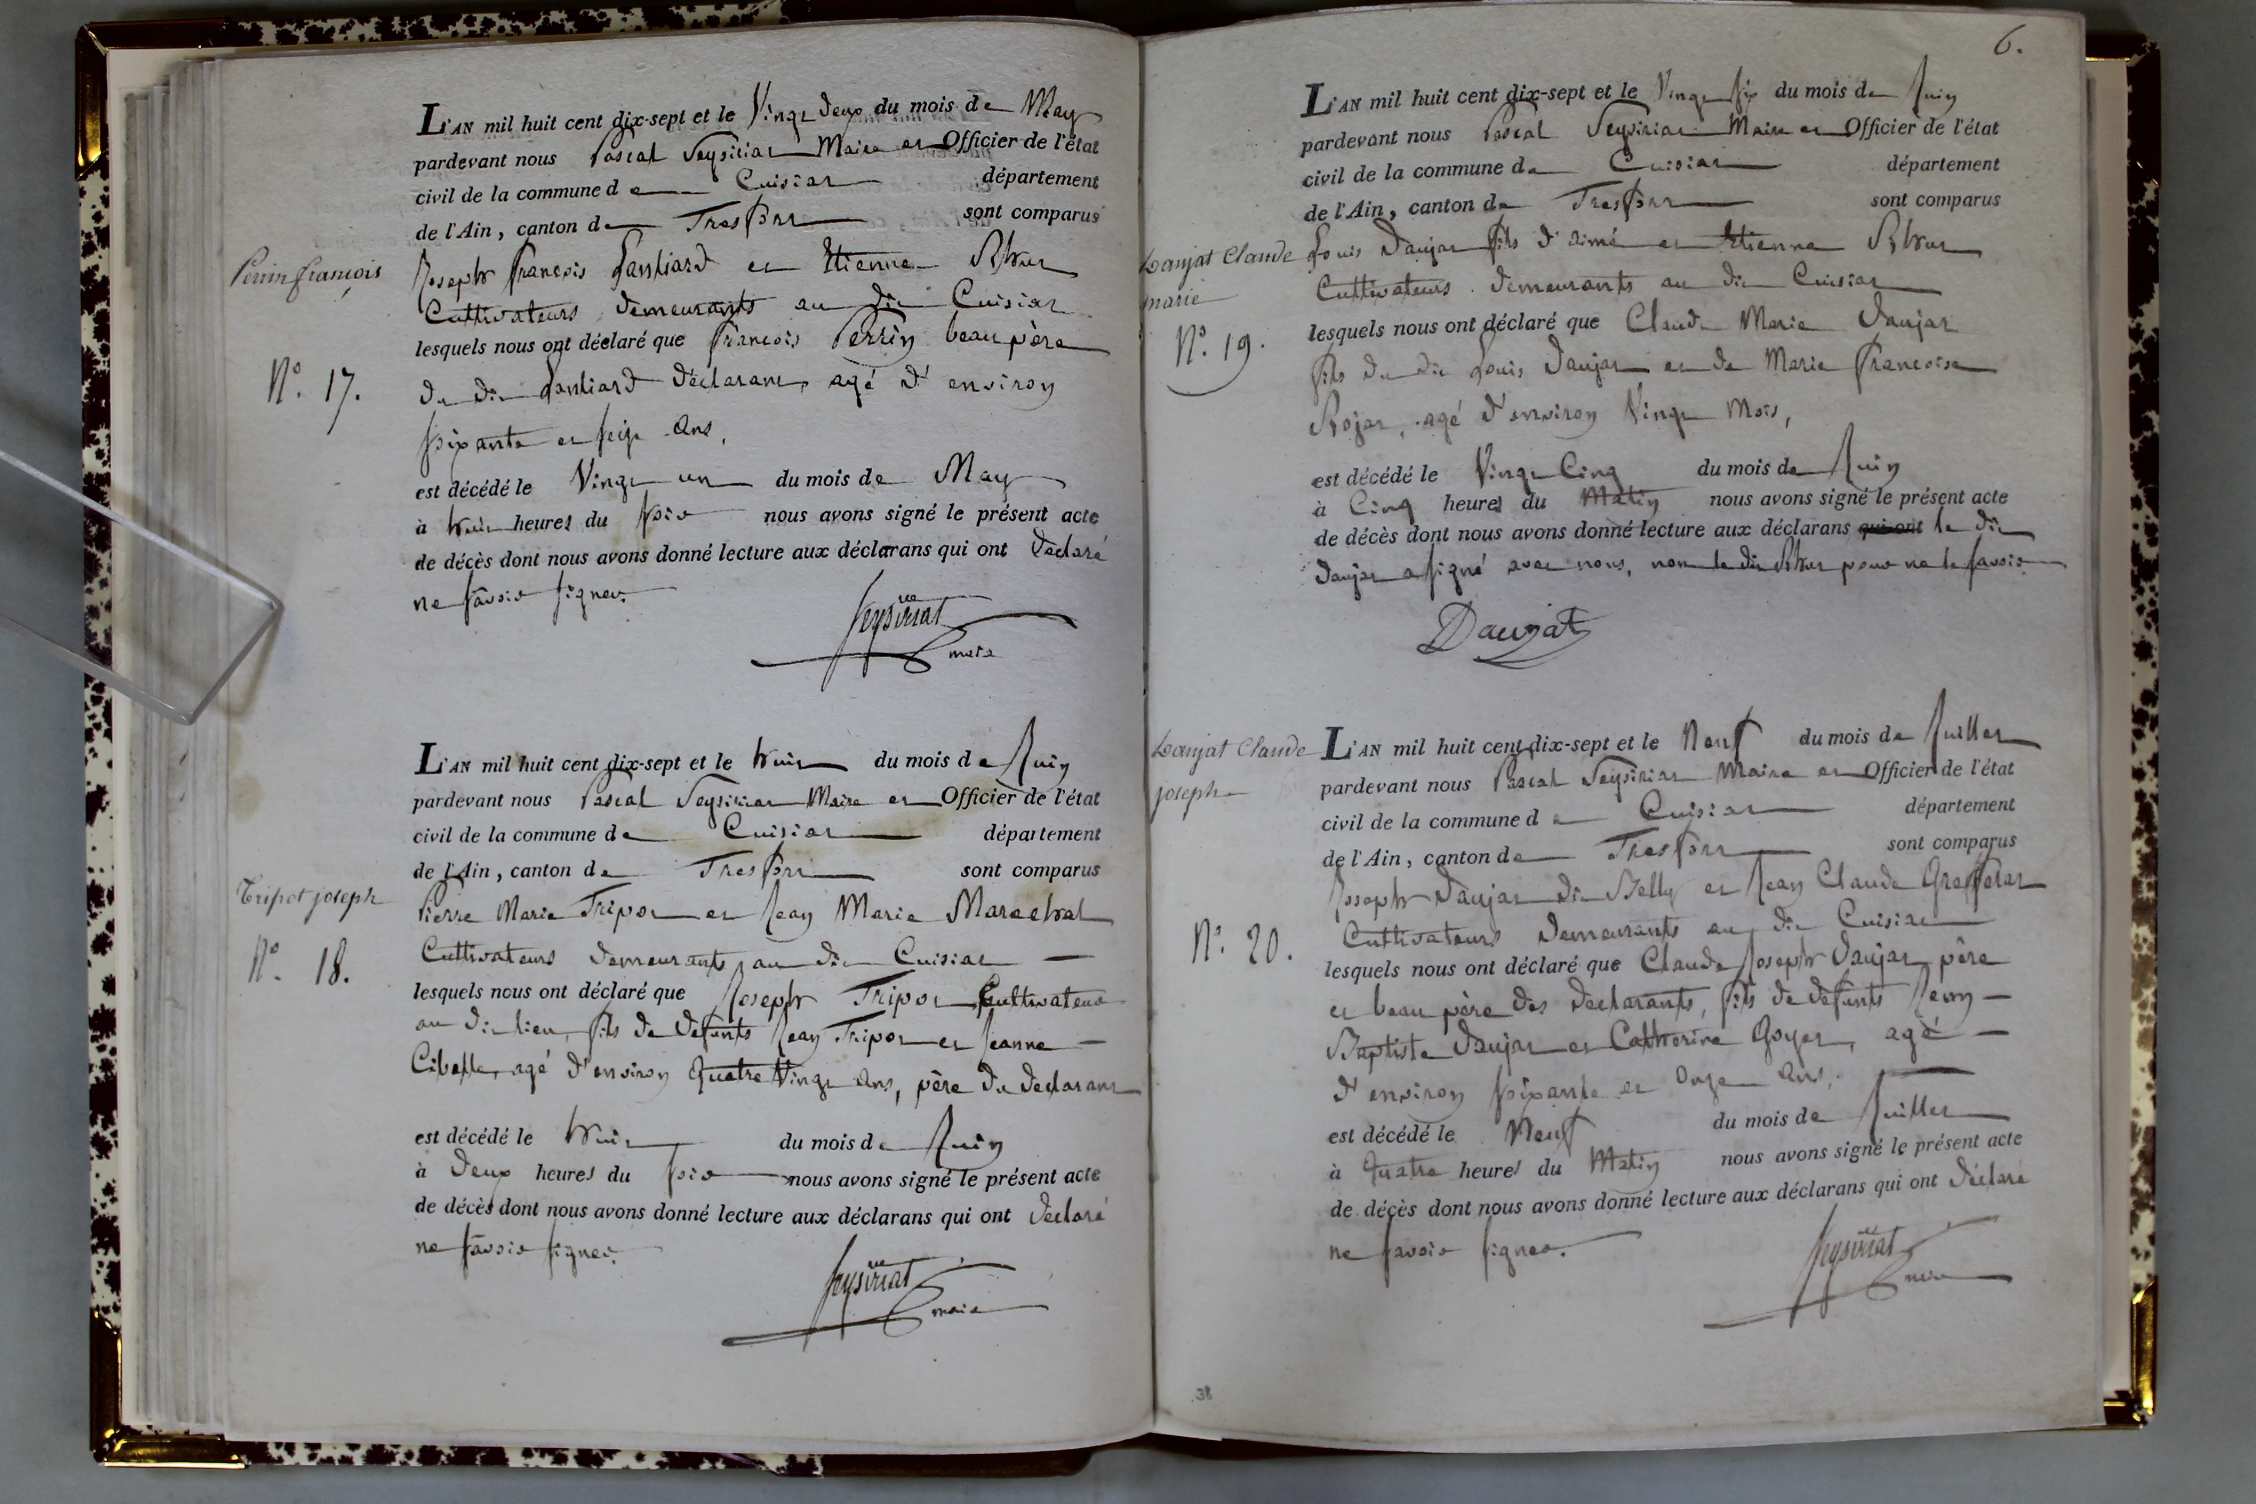 L'AN mil huit cent dix-sept et le Vingt deux du mois de May
pardevant nous Pascal Seysiriat Maire et Officier de l'état
civil de la commune de Cuisiat département
de l'Ain, canton de Treffort sont comparus
Perrin françois
Joseph françois et Etienne
Cultivateurs demeurants au dit Cuisiat
lesquels nous ont déclaré que françois Perrin beau père
N.° 17.
du dit déclarant, agé d'environ
soixante et seize ans,
est décédé le Vingt un du mois de May
à huit heures du soir nous avons signé le présent acte
de décès dont nous avons donné lecture aux déclarans qui ont déclaré
ne savoir signer.
Seysiriat
maire
L'AN mil huit cent dix-sept et le huit du mois de Juin
pardevant nous Pascal Seysiriat Maire et Officier de l'état
civil de la commune de Cuisiat département
de l'Ain, canton de Treffort sont comparus
Tripot joseph
Pierre Marie Tripot et Jean Marie Marechal
N.° 18.
Cultivateurs demeurants au dit Cuisiat
lesquels nous ont déclaré que Joseph Tripot Cultivateur
au dit lieu, fils de défunts Jean Tripot et Jeanne
agé d'environ quatre Vingt ans, père du declarant
est décédé le huit du mois de Juin
à deux heures du soir nous avons signé le présent acte
de décès dont nous avons donné lecture aux déclarans qui ont déclaré
ne savoir signer.
Seysiriat
maire
6.
L'AN mil huit cent dix-sept et le Vingt six du mois de Juin
pardevant nous Pascal Seysiriat Maire et Officier de l'état
civil de la commune de Cuisiat département
de l'Ain, canton de Treffort sont comparus
Daujat Claude
marie
Louis Daujat fils d'aimé et Etienne
Cultivateurs demeurants au dit Cuisiat
N.° 19.
lesquels nous ont déclaré que Claude Marie Daujat
fils du dit Louis Daujat et de Marie françoise
agé d'environ Vingt mois,
est décédé le Vingt Cinq du mois de Juin
à Cinq heures du Matin nous avons signé le présent acte
de décès dont nous avons donné lecture aux déclarans qui ont le dit
Daujat a signé avec nous, non le dit pour ne le savoir
Daujat
Daujat Claude
joseph
L'AN mil huit cent dix-sept et le Neuf du mois de Juillet
pardevant nous Pascal Seysiriat Maire et Officier de l'état
civil de la commune de Cuisiat département
de l'Ain, canton de Treffort sont comparus
Joseph Daujat dit Belly et Jean Claude
N.° 20.
Cultivateurs demeurants au dit Cuisiat
lesquels nous ont déclaré que Claude Joseph Daujat, père
et beau père des declarants, fils de défunts Jean
Baptiste Daujat et Catherine Goyet, agé
d'environ soixante et onze ans,
est décédé le Neuf du mois de Juillet
à quatre heures du Matin nous avons signé le présent acte
de décès dont nous avons donné lecture aux déclarans qui ont déclaré
ne savoir signer.
Seysiriat
maire
38